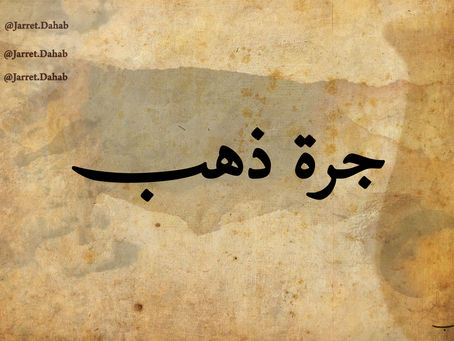 @Jarret.Dahab
@Jarret.Dahab
@Jarret.Dahab
جرة ذهب